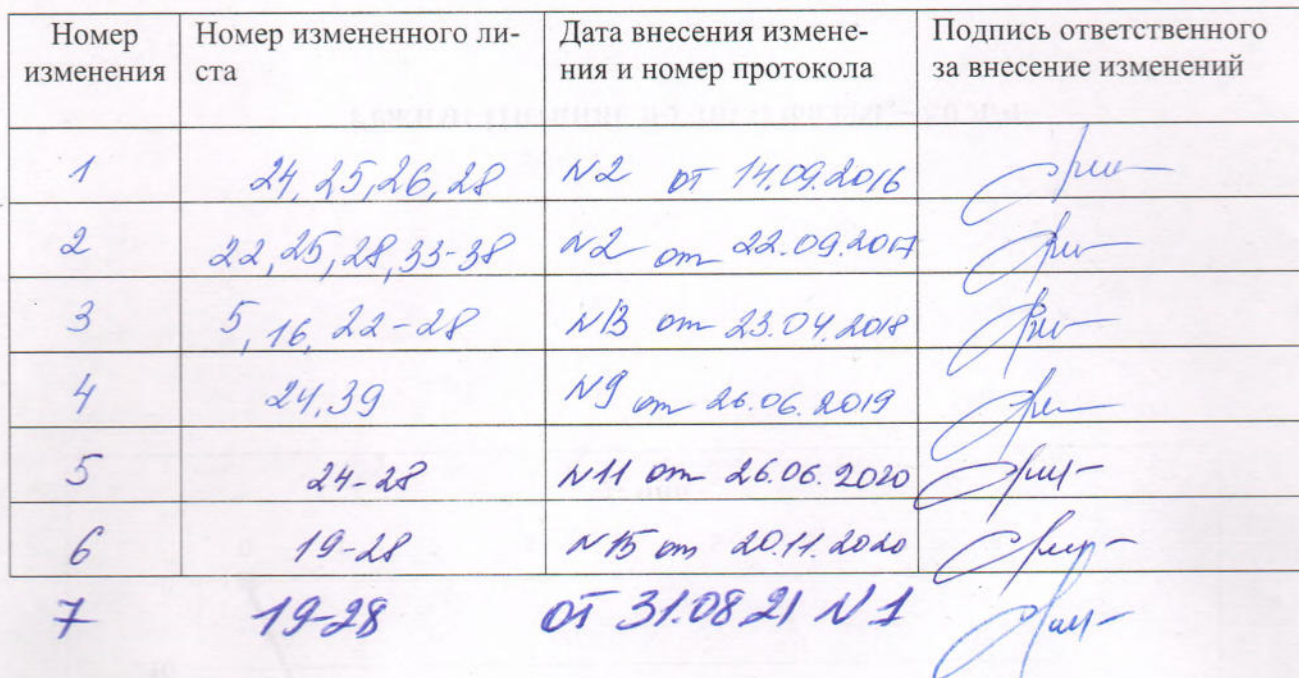 Номер изменения | Номер измененного ли-ста | Дата внесения измене-ния и номер протокола | Подпись ответственного за внесение изменений
1 | 24, 25, 26, 28 | N2 от 14.09.2016
2 | 22, 25, 28, 33-38 | N2 от 22.09.2017
3 | 5, 16, 22-28 | N13 от 23.04.2018
4 | 24, 39 | N9 от 26.06.2019
5 | 24-28 | N11 от 26.06.2020
6 | 19-28 | N15 от 20.11.2020
7 | 19-28 | от 31.08 21 N 1